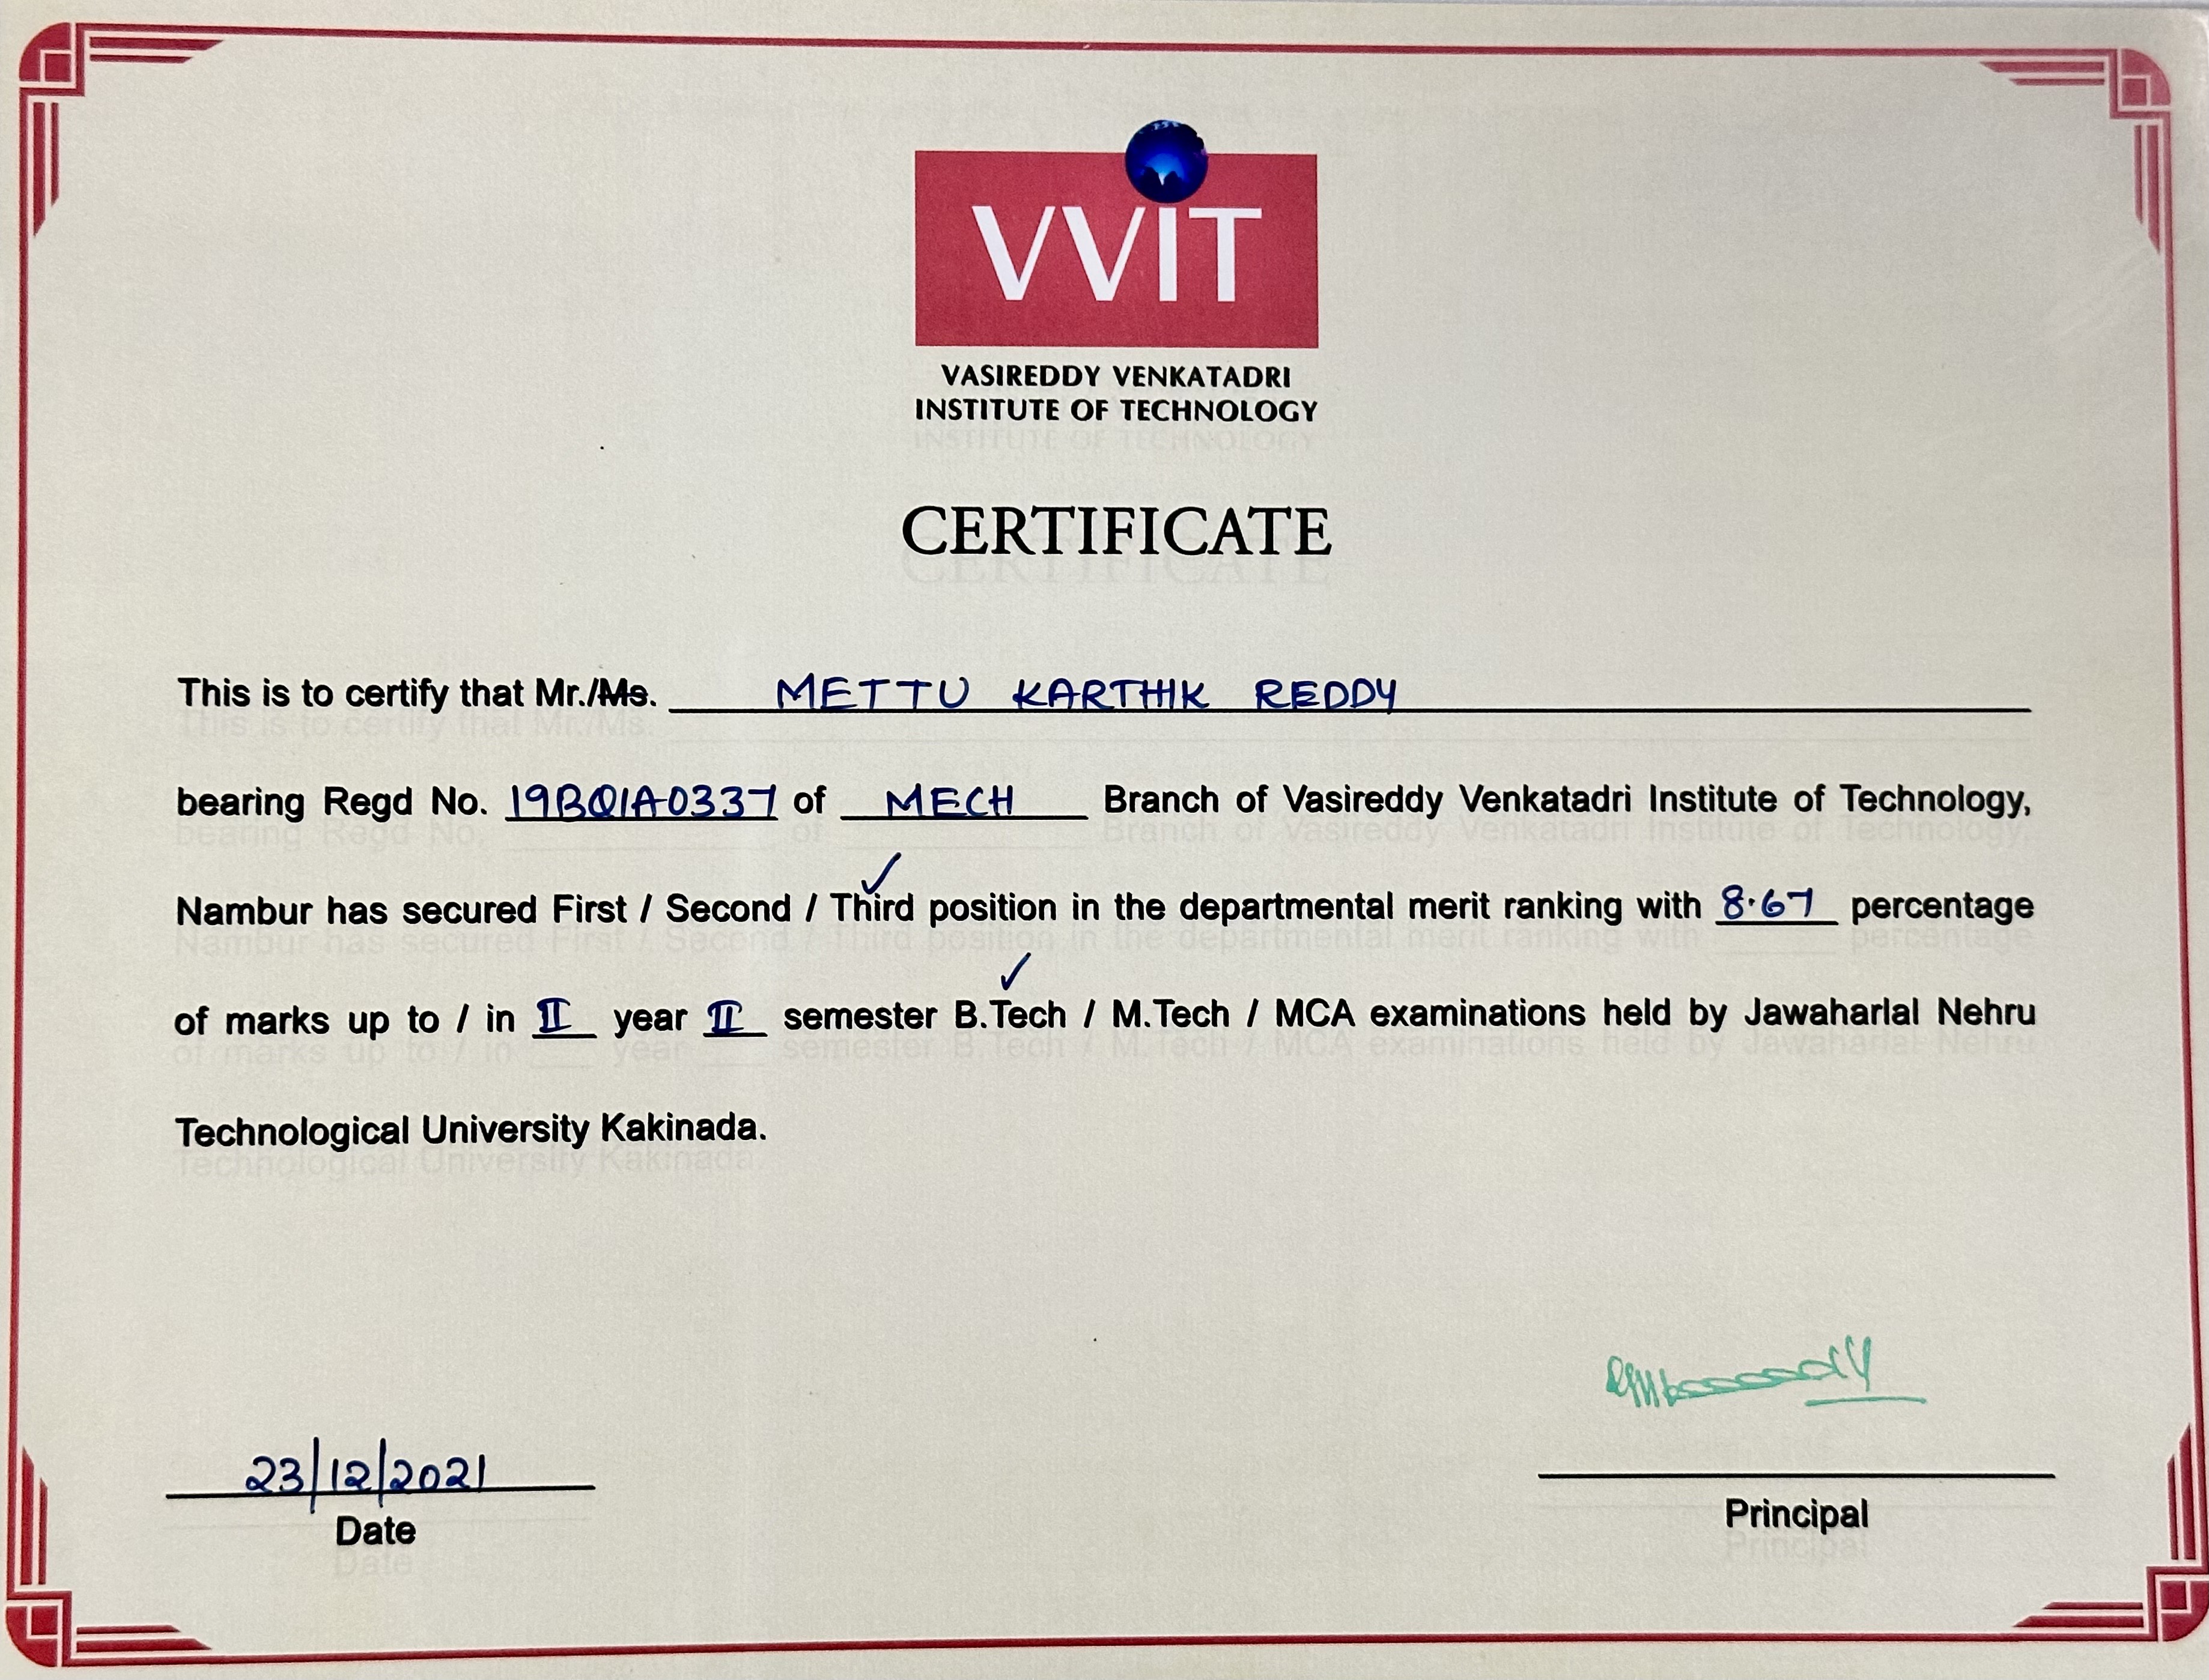 VVIT
VASIREDDY VENKATADRI
INSTITUTE OF TECHNOLOGY
CERTIFICATE
This is to certify that Mr./Ms. METTU KARTHIK REDDY
bearing Regd No. 19BQ1A0337 of MECH Branch of Vasireddy Venkatadri Institute of Technology,
Nambur has secured First / Second / Third position in the departmental merit ranking with 8.67 percentage
of marks up to / in II year II semester B.Tech / M.Tech / MCA examinations held by Jawaharlal Nehru
Technological University Kakinada.
23/12/2021
Date
Principal